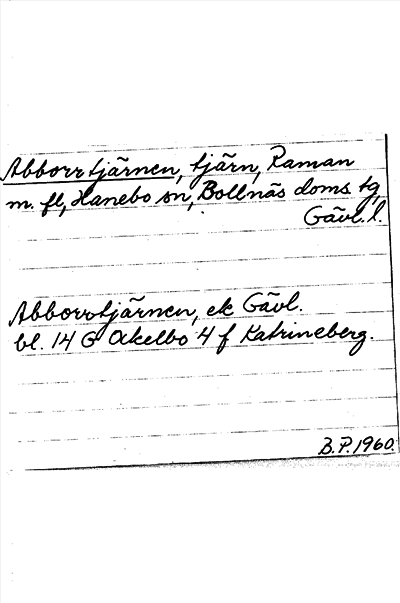 Abborrtjärnen, tjärn, Raman
m. fl, Hanebo sn, Bollnäs doms. tg,
Gävl. l.
Abborrtjärnen, ek Gävl.
bl. 14 G Ockelbo 4 f Katrineberg.
B.P. 1960.